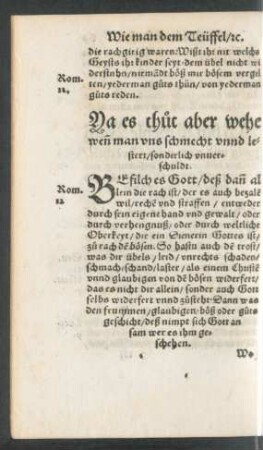 Wie man dem Teüffel/ꝛc.
die rachgirig waren: Wißt ihr nit welchs
Geysts ihr kinder seyt dem übel nicht wi
Rom.
derstehn/niemādt böß mit bösem vergel
12.
ten/yederman gůts thůn/von yederman
gůts reden.
Ya es thůt aber wehe
weñ man vns schmecht vnnd le-
stert/sonderlich vnuer-
schuldt.
Rom.
BEfilch es Gott/deß dañ al
12
lein die rach ist/der es auch bezalē
wil/rechē vnd straffen / entweder
durch sein eigene hand vnd gewalt/oder
durch verhengnuß/oder durch weltliche
Oberkeyt/die ein Dienerin Gottes ist/
zů rach dē bösen. So hastu auch dē trost/
was dir übels/leid/vnrechts schaden/
schmach/schand/laster/als einem Christē
vnnd glaubigen von dē bösen widerfert/
das es nicht dir allein/sonder auch Gott
selbs widerfert vnnd zůsteht: Dann was
den frummen/glaubigen/böß oder gůts
geschicht/deß nimpt sich Gott an
sam wer es ihm ge-
schehen.
Wo